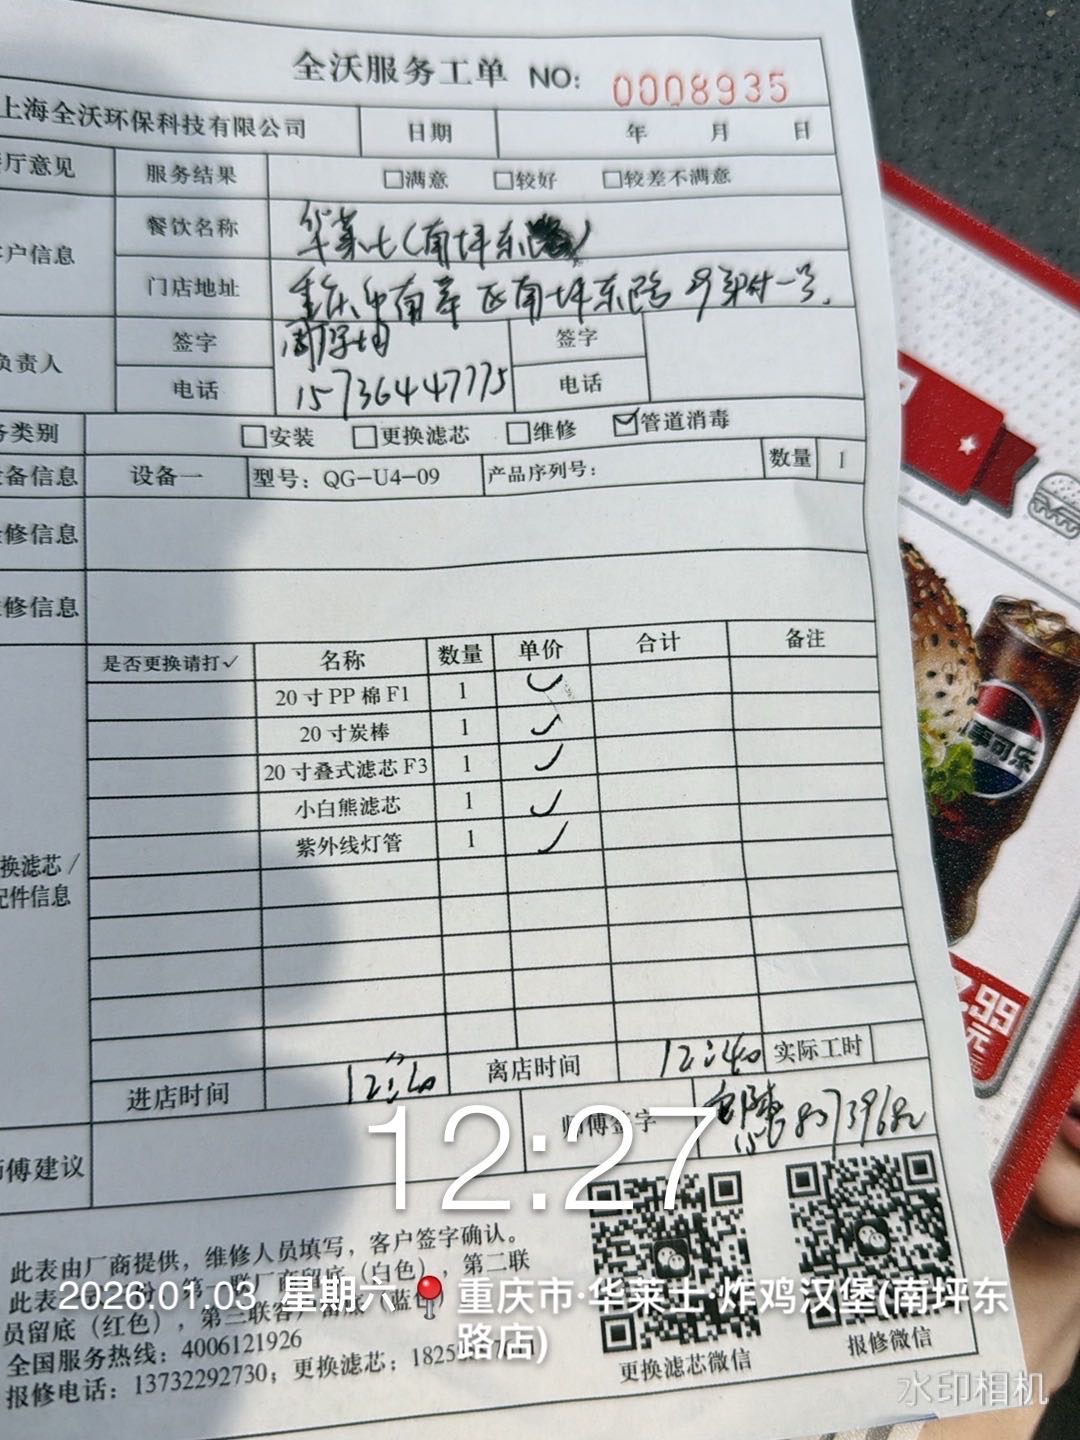 全沃服务工单 NO: 0008935
上海全沃环保科技有限公司 日期 年 月 日
厅意见 服务结果 □满意 □较好 □较差不满意
户信息 餐饮名称 华莱士(南坪东路)
门店地址 重庆市南岸区南坪东路 号附一号.
负责人 签字 签字
电话 15736447775 电话
务类别 □安装 □更换滤芯 □维修 ☑管道消毒
设备信息 设备一 型号: QG-U4-09 产品序列号: 数量 1
修信息
修信息
是否更换请打✓ 名称 数量 单价 合计 备注
20寸PP棉F1 1 ✓
20寸炭棒 1 ✓
20寸叠式滤芯F3 1 ✓
小白熊滤芯 1 ✓
紫外线灯管 1 ✓
换滤芯/
配件信息
进店时间 离店时间 12:40 实际工时
师傅签字
师傅建议
12:27
此表由厂商提供，维修人员填写，客户签字确认。
此表 第一联厂商留底（白色），第二联
员留底（红色），第三联客户留底（蓝色）
全国服务热线: 4006121926
报修电话: 13732292730; 更换滤芯: 1825
更换滤芯微信 报修微信
2026.01.03 星期六 重庆市·华莱士·炸鸡汉堡(南坪东
路店)
水印相机
事可乐
.99
元